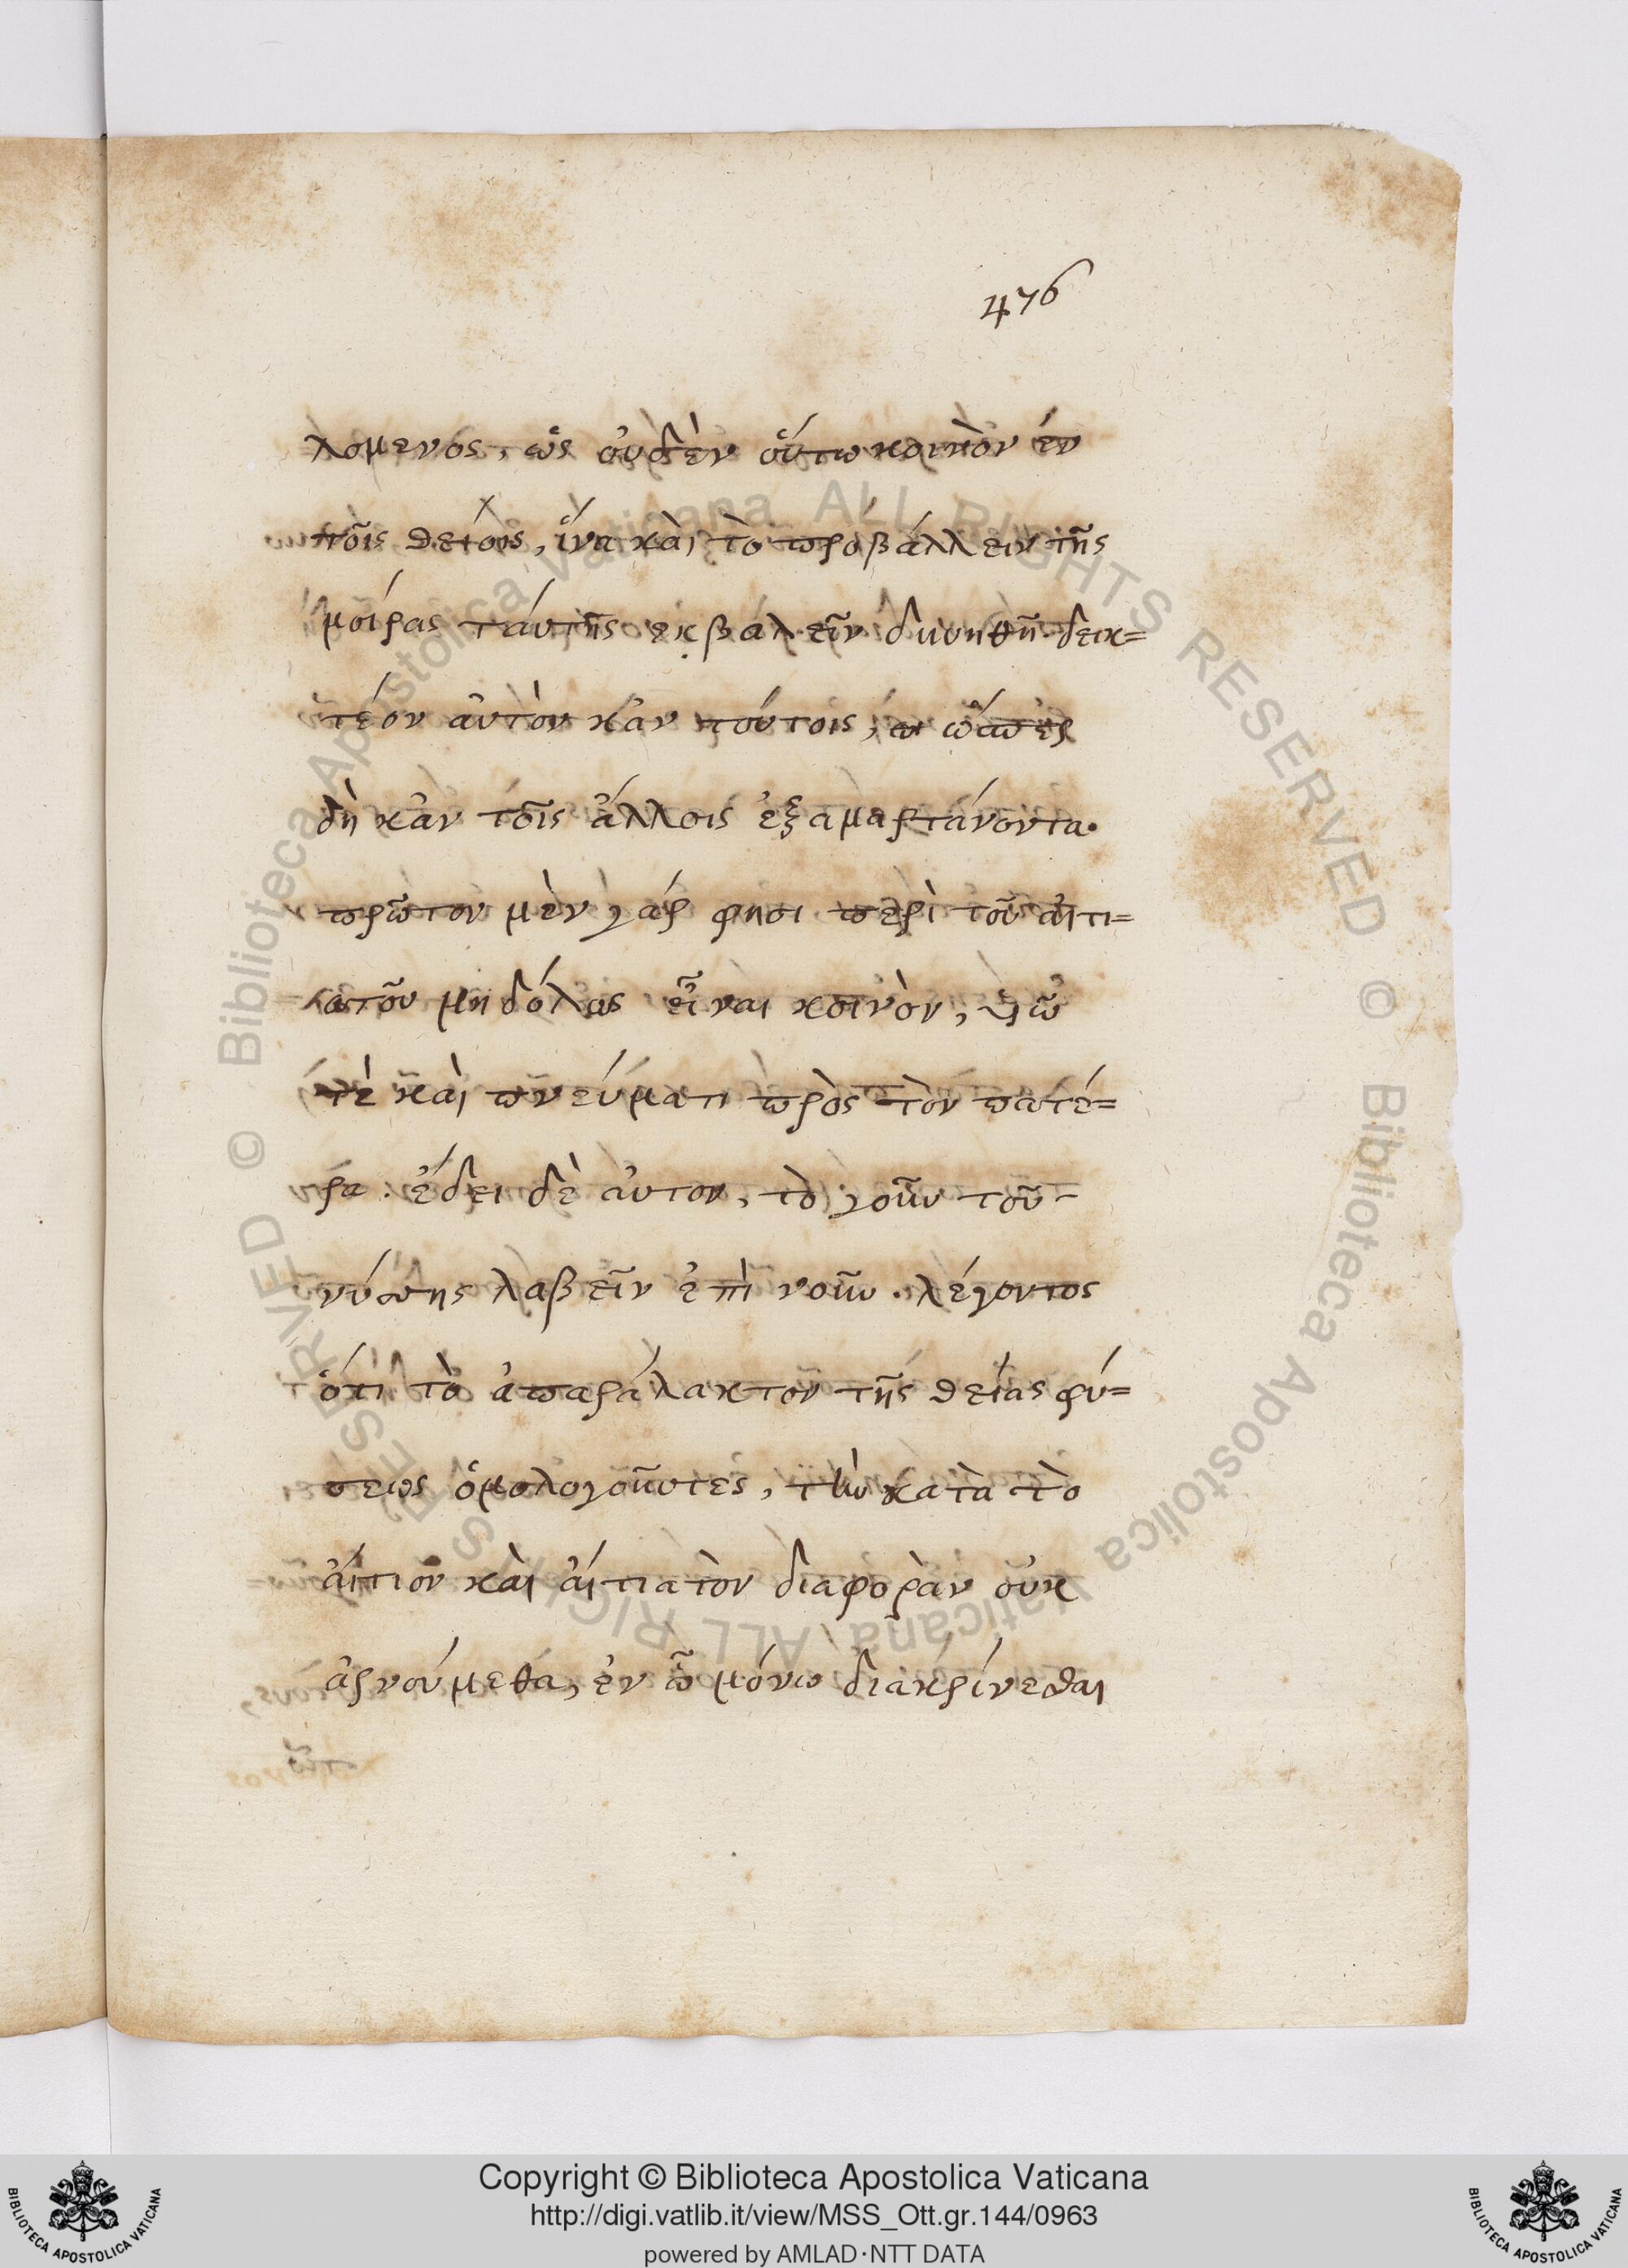 476
λομενος, ὡς οὐδὲν οὕτω κοινὸν ἐν
τοῖς θείοις, ἵνα καὶ τὸ προβάλλειν τῆς
μοίρας ταύτης ἐκβαλεῖν δυνηθῆ δεικ=
τέον αὐτὸν κἀν τούτοις, ὥσπερ
δὴ κἀν τοῖς ἄλλοις ἐξαμαρτάνοντα.
πρῶτον μὲν γάρ φησι περὶ τοῦ αἰτι=
ατοῦ μηδόλως εἶναι κοινὸν, υἱῷ
τὲ καὶ πνεύματι πρὸς τὸν πατέ=
ρα. ἔδει δὲ αὐτον, τὸ γοῦν τοῦ
νύσσης λαβεῖν ἐπὶ νοῦν. λέγοντος
ὅτι τὸ ἀπαράλακτον τῆς θείας φύ=
σεως ὁμολογοῦντες, τὴν κατὰ τὸ
αἴτιον καὶ αἰτιατὸν διαφορὰν οὐκ
ἀρνούμεθα, ἐν ᾧ μόνω διακρίνεσθαι
Copyright © Biblioteca Apostolica Vaticana
http://digi.vatlib.it/view/MSS_Ott.gr.144/0963
powered by AMLAD·NTT DATA
BIBLIOTECA APOSTOLICA VATICANA
BIBLIOTECA APOSTOLICA VATICANA
© Biblioteca Apostolica Vaticana ALL RIGHTS RESERVED
© Biblioteca Apostolica Vaticana ALL RIGHTS RESERVED